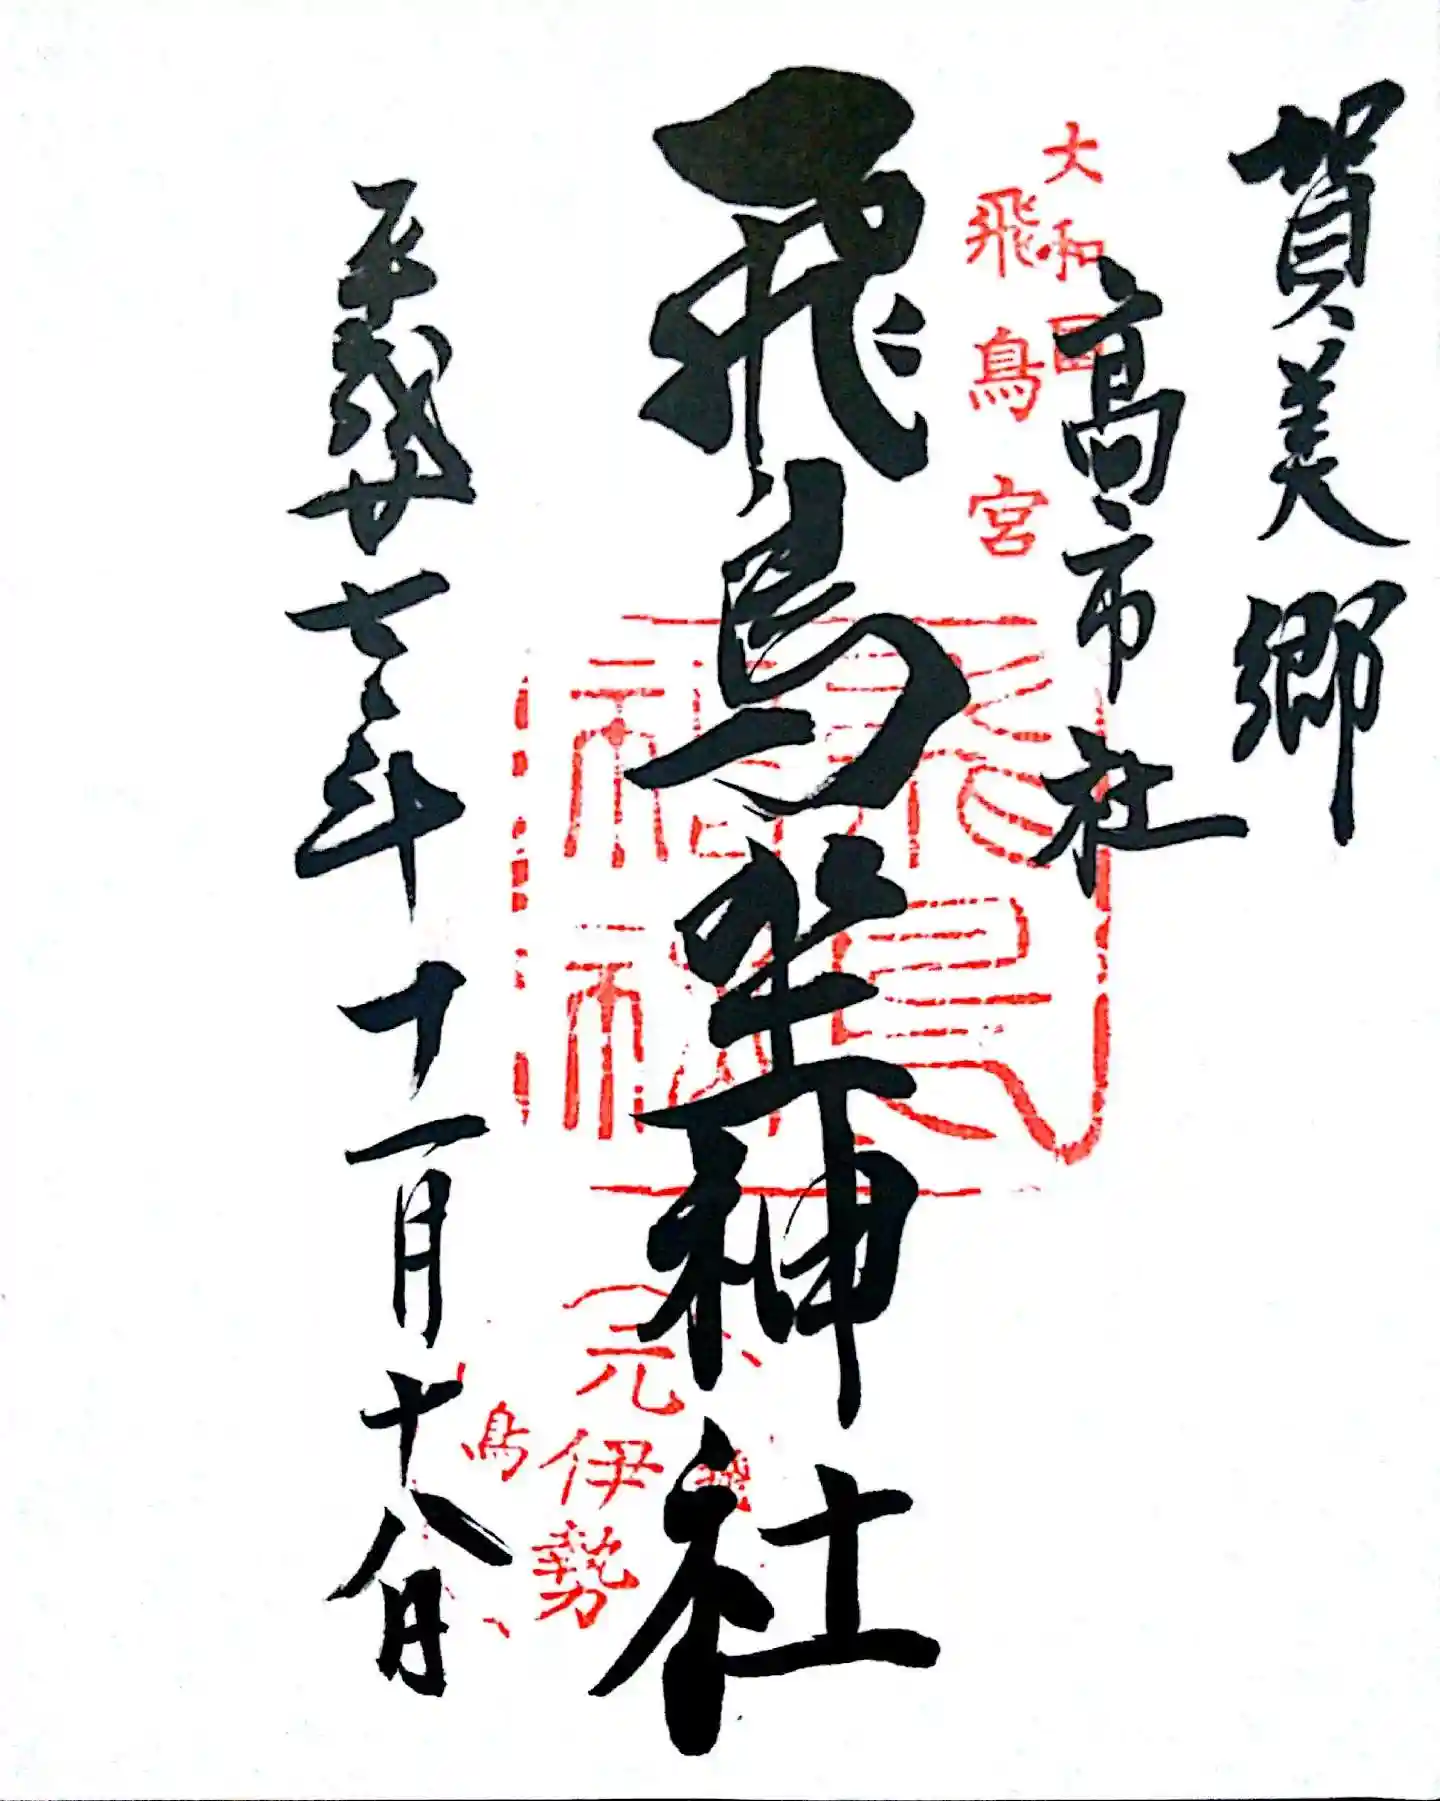 賀美郷
高市社
大和国
飛鳥宮
飛鳥坐神社
飛鳥神社
元伊勢
飛鳥
平成廿七年十一月十八日